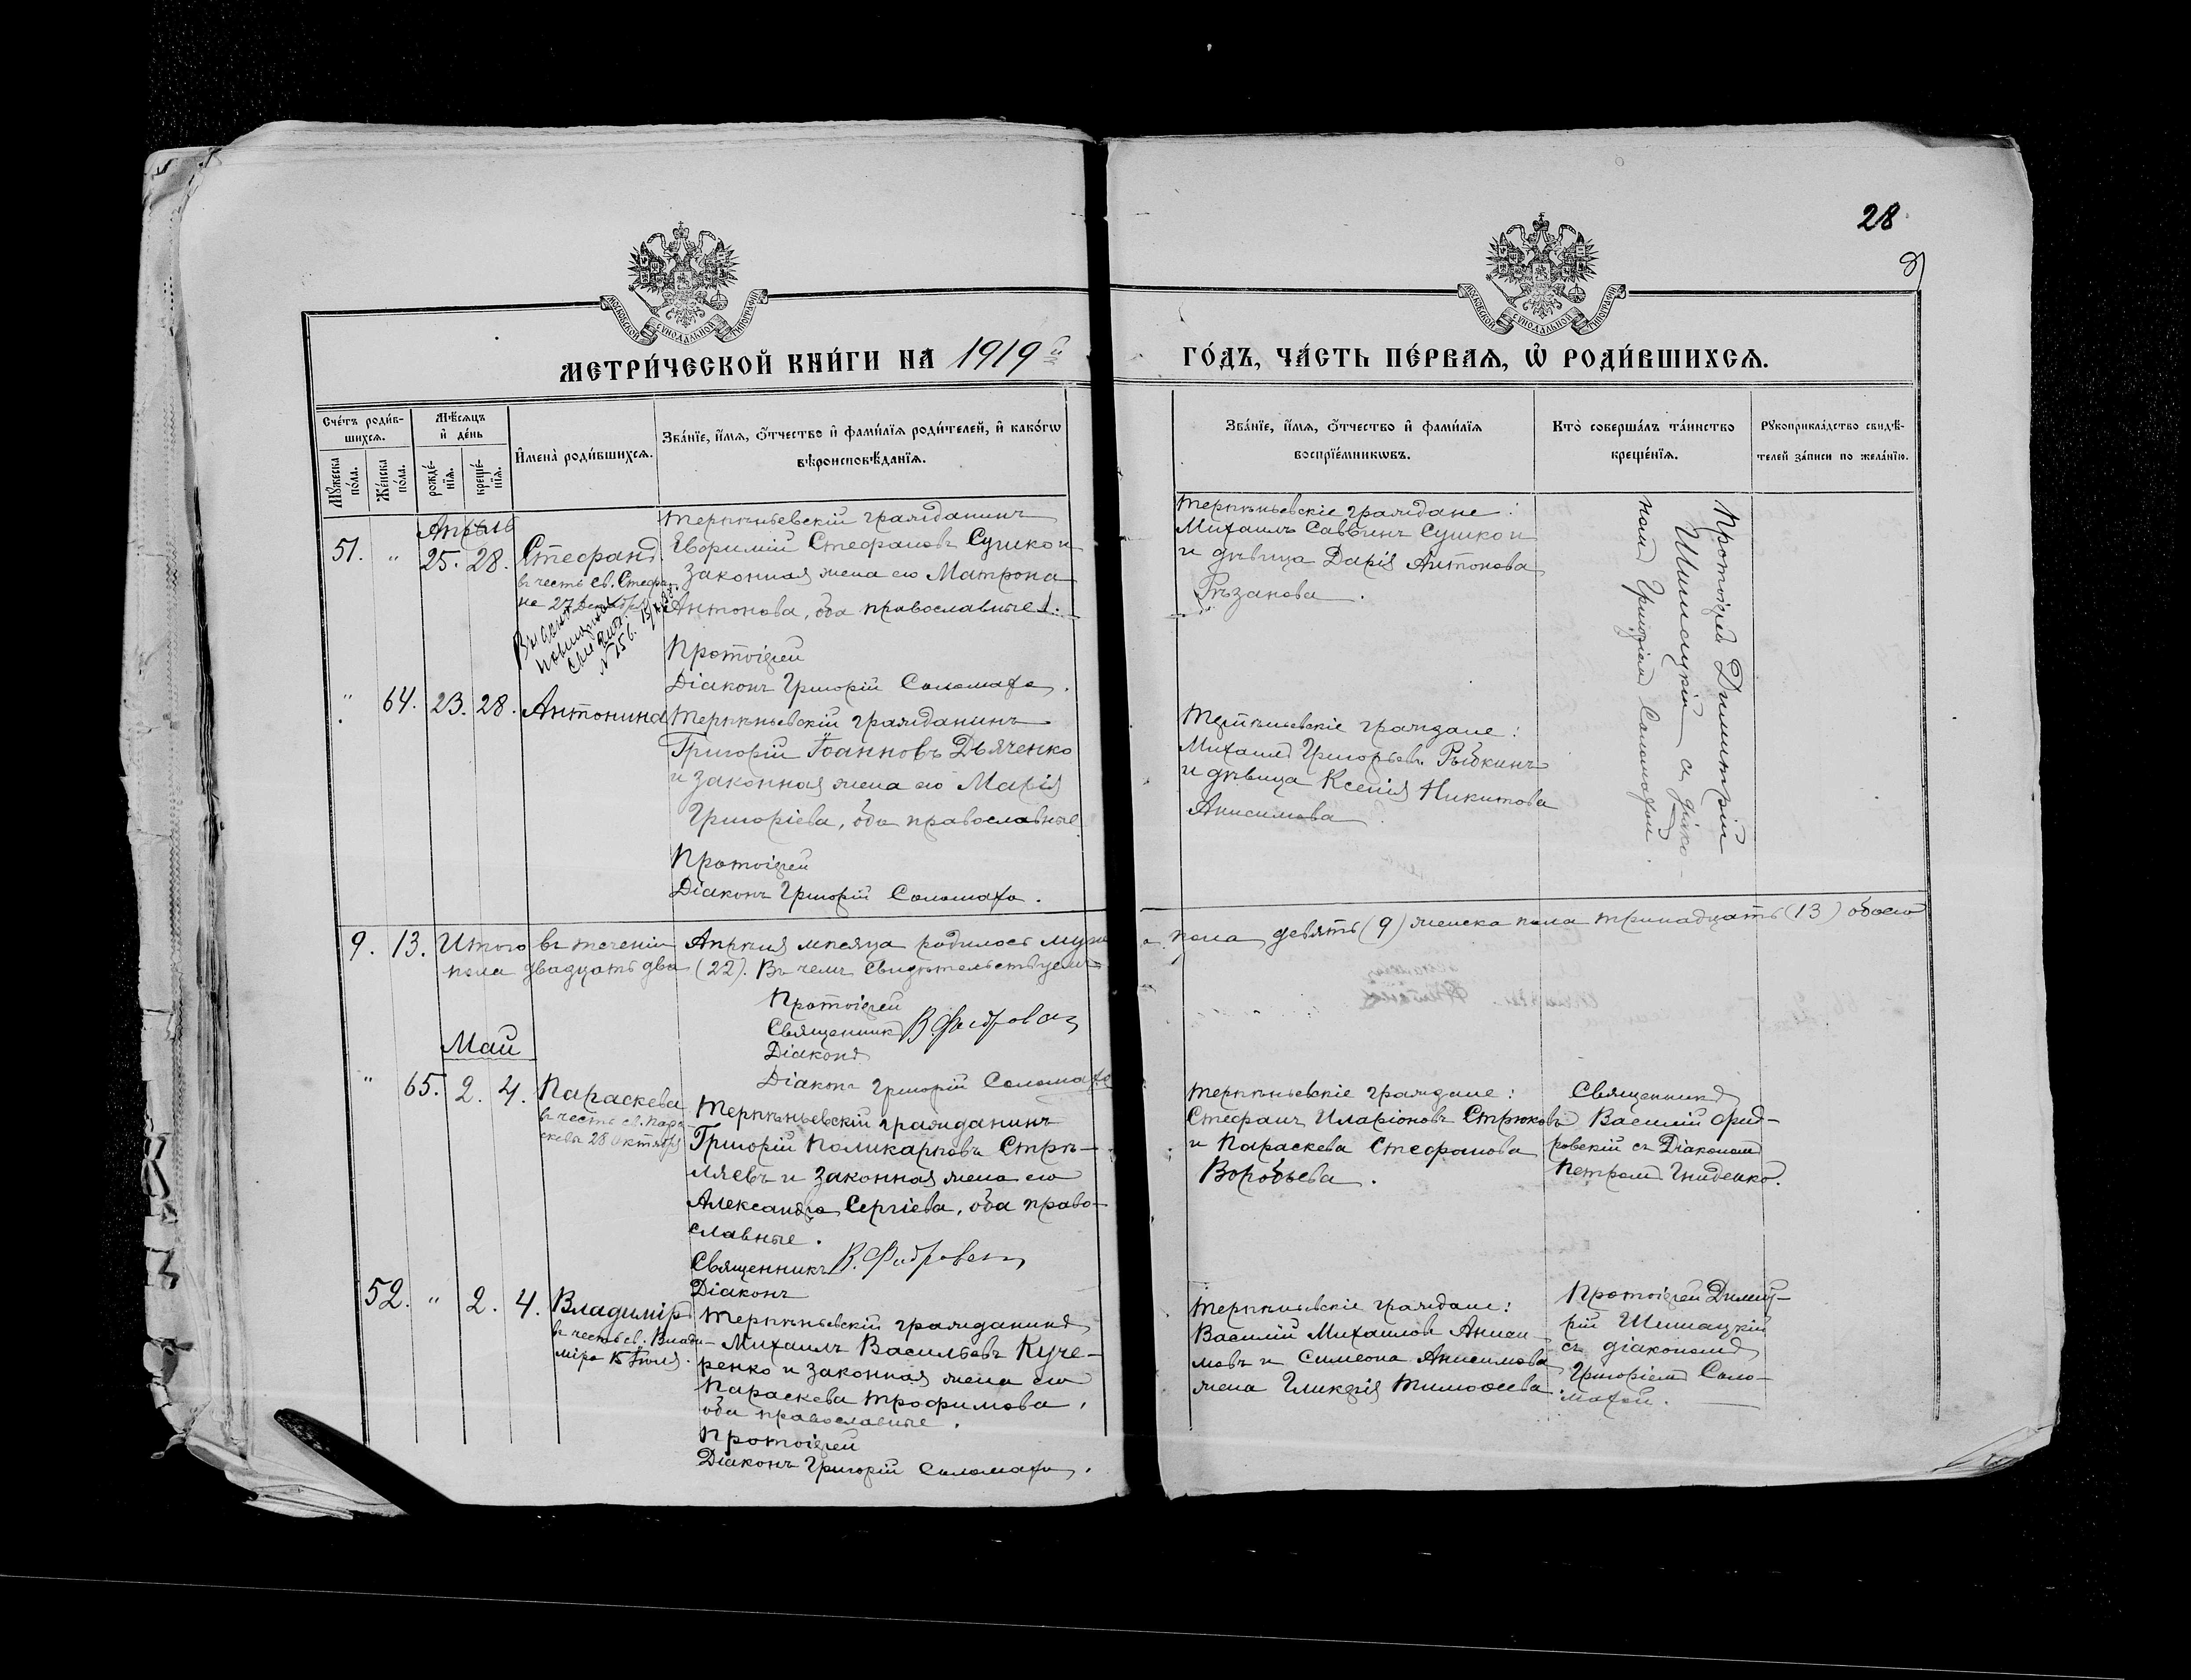 28
МОСКОВСКОЙ СѴНОДАЛЬНОЙ ТИПОГРАФІИ
МОСКОВСКОЙ СѴНОДАЛЬНОЙ ТИПОГРАФІИ
МЕТРИ́ЧЕСКОЙ КНИ́ГИ НА 1919 й
ГО́ДЪ, ЧА́СТЬ ПЕ́РВАѦ, Ѽ РОДИ́ВШИХСѦ.
Сче́тъ роди́в-
шихсѧ.
Мꙋ́жеска по́ла.
Же́нска по́ла.
Мѣ́сѧцъ
и҆ де́нь
рожде́-
нїѧ.
креще́-
нїѧ.
И҆мена̀ роди́вшихсѧ.
Зва́нїе, и҆́мѧ, ѻ҆́тчество и҆ фами́лїѧ роди́телей, и҆ како́гѡ
вѣроисповѣ́данїѧ.
Зва́нїе, и҆́мѧ, ѻ҆́тчество и҆ фами́лїѧ
воспрїе́мникѡвъ.
Кто̀ соверша́лъ та́инство
креще́нїѧ.
Рꙋкоприкла́дство свидѣ́-
телей за́писи по жела́нїю.
Апрѣль
51. " 25. 28. Стефанъ
въ честь св. Стефа-
на 27 Декабря
№ 256.
Терпѣньевскій гражданинъ
Евфимій Стефановъ Сушко и
законная жена его Матрона
Антонова, оба православные.
Протоіерей
Діаконъ Григорій Соломаха.
Терпѣньевскіе граждане:
Михаилъ Саввинъ Сушко и
и дѣвица Дарія Антонова
Рѣзанова.
Протоіерей Димитрій
Шишацкій съ діако-
номъ Григоріемъ Соломахой.
" 64. 23. 28. Антонина
Терпѣньевскій гражданинъ
Григорій Іоанновъ Дьяченко
и законная жена его Марія
Григоріева, оба православные.
Протоіерей
Діаконъ Григорій Соломаха.
Терпѣньевскіе граждане:
Михаилъ Григорьевъ Рыбкинъ
и дѣвица Ксенія Никитова
Анисимова
9. 13. Итого въ теченіи Апрѣля мѣсяца родилось муже
ска пола девять (9) женска пола тринадцать (13) обоего
пола двадцать два (22). Въ чемъ свидѣтельствуемъ
Протоіерей
Священникъ В. Фидровскій
Діаконъ
Діаконъ Григорій Соломаха
Май
" 65. 2. 4. Параскева
въ честь св. Пара-
скевы 28 Октября
Терпѣньевскій гражданинъ
Григорій Поликарповъ Стрѣ-
ляевъ и законная жена его
Александра Сергіева, оба право-
славные.
Священникъ В. Фидровскій
Діаконъ
Терпѣньевскіе граждане:
Стефанъ Иларіоновъ Стрюковъ
и Параскева Стефанова
Воробьева.
Священникъ
Василій Фид-
ровскій съ Діакономъ
Петромъ Гниденко.
52. " 2. 4. Владиміръ
въ честь св. Влади-
міра 15 Іюля.
Терпѣньевскій гражданинъ
Михаилъ Васильевъ Куче-
ренко и законная жена его
Параскева Трофимова,
оба православные.
Протоіерей
Діаконъ Григорій Соломаха.
Терпѣньевскіе граждане:
Василій Михаиловъ Аниси-
мовъ и Симеона Анисимова
жена Гликерія Тимофеева
Протоіерей Димит-
рій Шишацкій
съ діакономъ
Григоріемъ Соло-
махой.